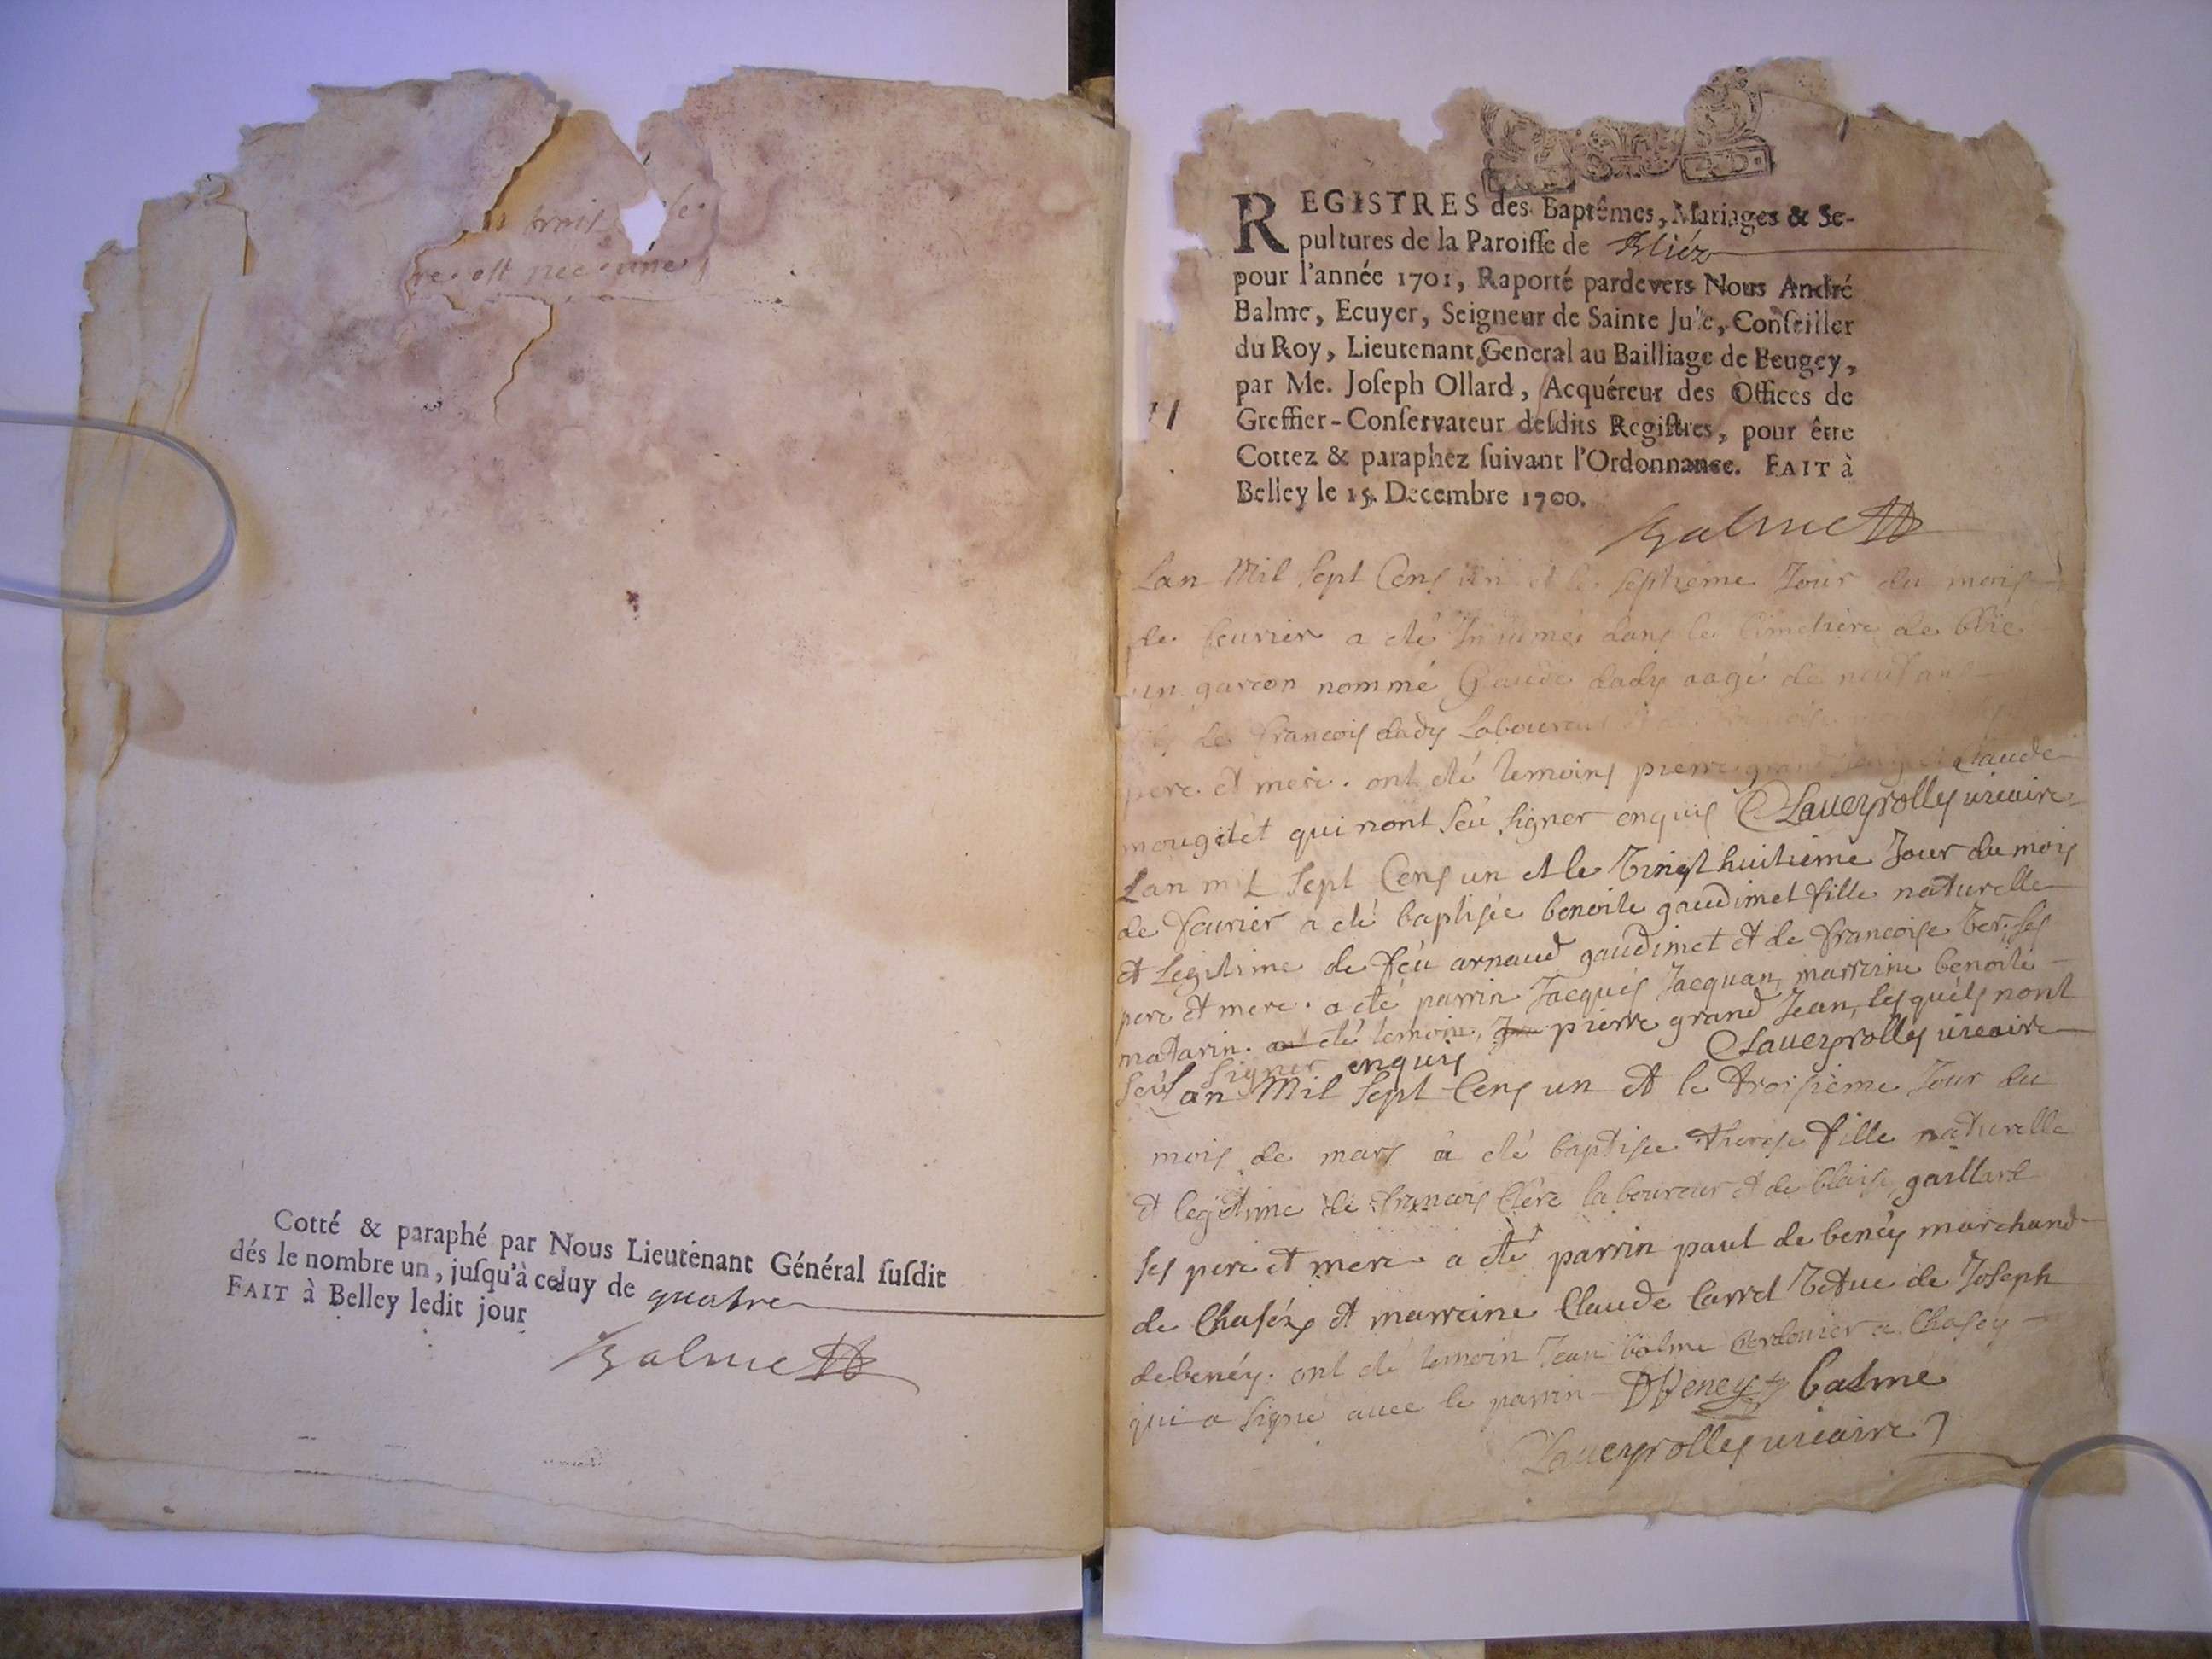 trois
est nee
Cotté & paraphé par Nous Lieutenant Général susdit
dés le nombre un, jusqu'à celuy de quatre
FAIT à Belley ledit jour
Balme
REGISTRES des Baptêmes, Mariages & Se-
pultures de la Paroisse de Bliéz
pour l'année 1701, Raporté pardevers Nous André
Balme, Ecuyer, Seigneur de Sainte Jule, Conseiller
du Roy, Lieutenant General au Bailliage de Beugey,
par Me. Joseph Ollard, Acquéreur des Offices de
Greffier-Conservateur desdits Registres, pour être
Cottez & paraphez suivant l'Ordonnance. FAIT à
Belley le 15. Decembre 1700.
Balme
Lan Mil Sept Cens un et le septieme Jour du mois
de feurier a eté Inhumé dans le Cimetiere de blie
un garcon nommé Claude dady aagé de neuf an
de francois dady Laboureur
pere et mere. ont eté temoins pierre grand Claude
mougetet qui nont seu signer enquis Laueyrolles uicaire
Lan mil Sept Cens un et le Vingt huitieme Jour du mois
de feurier a eté baptisée benoite gaudimet fille naturelle
et Legitime de feu arnaud gaudimet et de francoise ses
pere et mere. a eté parrin Jacques Jacquan, marreine benoite
matarin. eté temoin, pierre grand Jean, lesquels nont
seu signer enquis Laueyrolles uicaire
Lan Mil Sept Cens un et le troisieme Jour du
mois de mars a eté baptisee therese fille naturelle
et legitime de francois Clere laboureur et de blaise gaillard
ses pere et mere a eté parrin paul de beney marchand
de Chaséy et marreine Claude Carrel Vefue de Joseph
debenéy. ont eté temoin Jean balme Cordonier a Chasey
qui a signé auec le parrin DBeney balme
Laueyrolles uicaire